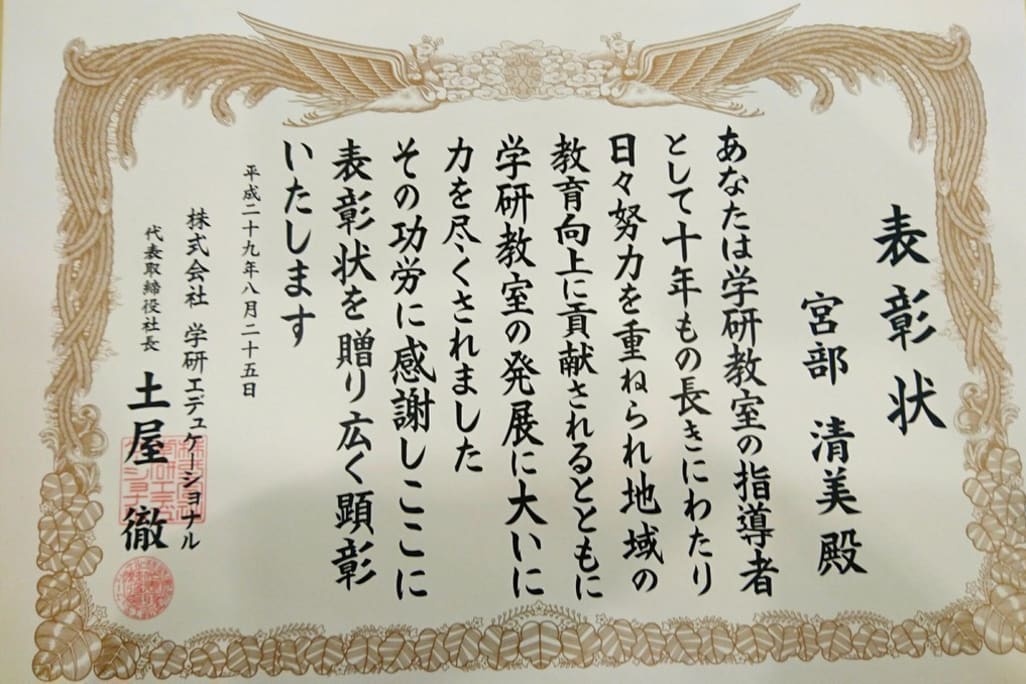 表彰状
宮部 清美 殿
あなたは学研教室の指導者
として十年もの長きにわたり
日々努力を重ねられ地域の
教育向上に貢献されるとともに
学研教室の発展に大いに
力を尽くされました
その功労に感謝しここに
表彰状を贈り広く顕彰
いたします
平成二十九年八月二十五日
株式会社 学研エデュケーショナル
代表取締役社長 土屋 徹